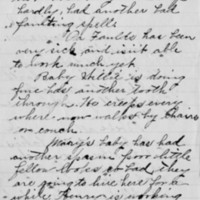 hardly, had another bad
fainting spell.
Faults has been
very sick and isn't able
to work much yet
Baby is doing
fine has another tooth
through. He creeps every
where now walks by chairs
or couch.
Mary's baby has had
another spasm poor little
fellow looks so bad they
are going to live here for a
while is working